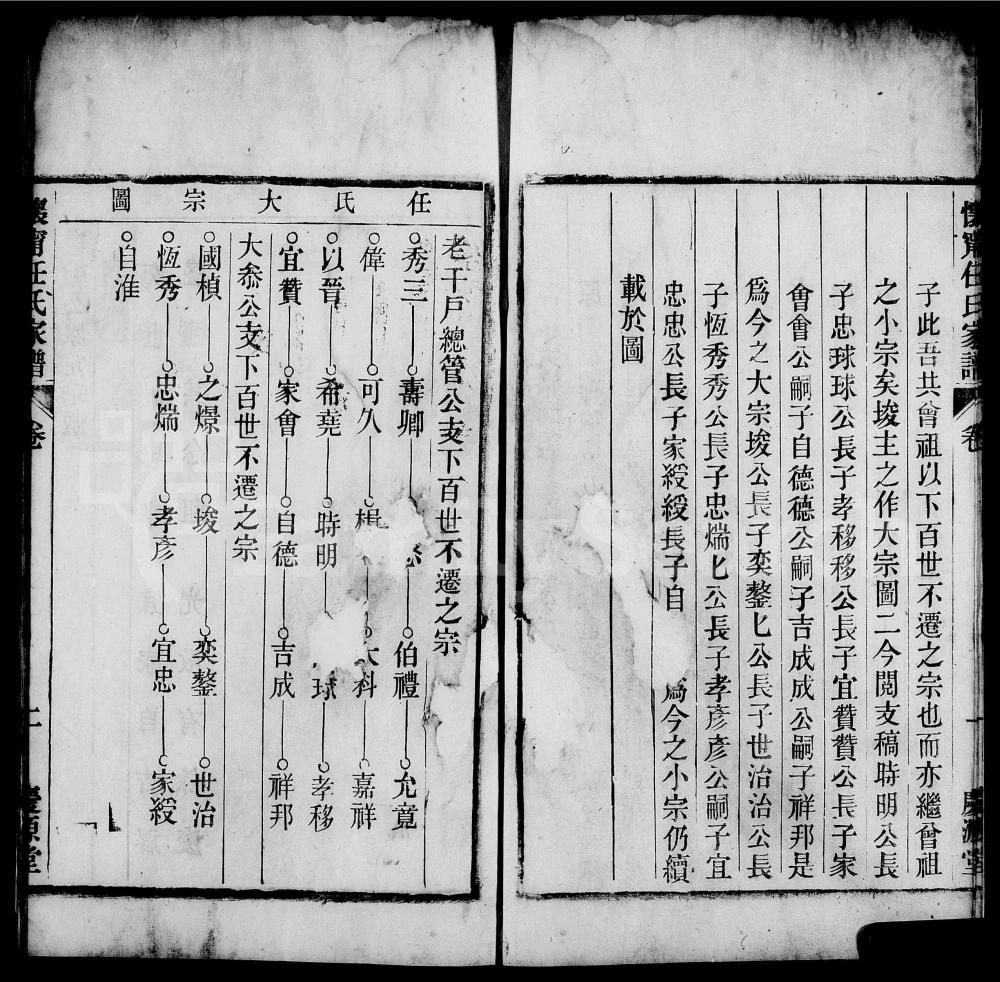 懷甯任氏家譜 卷 一 慶源堂
子此吾共曾祖以下百世不遷之宗也而亦繼曾祖
之小宗矣埈主之作大宗圖二今閱支稿時明公長
子忠球球公長子孝移移公長子宜贊贊公長子家
會會公嗣子自德德公嗣子吉成成公嗣子祥邦是
爲今之大宗埈公長子奕鏊匕公長子世治治公長
子恆秀秀公長子忠煓匕公長子孝彥彥公嗣子宜
忠忠公長子家綬綬長子自 爲今之小宗仍續
載於圖
任氏大宗圖
老千戶總管公支下百世不遷之宗
秀三 壽卿 伯禮 允竟
偉 可久 科 嘉祥
以晉 希堯 時明 球 孝移
宜贊 家會 自德 吉成 祥邦
大叅公支下百世不遷之宗
國楨 之㬌 埈 奕鏊 世治
恆秀 忠煓 孝彥 宜忠 家綬
自淮
懷甯任氏家譜 卷 二 慶源堂